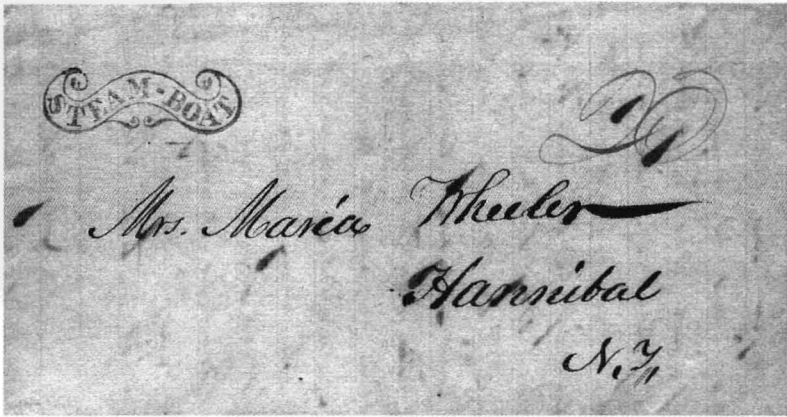 STEAM-BOAT
Mrs. Maria Wheeler
Hannibal
N.Y.